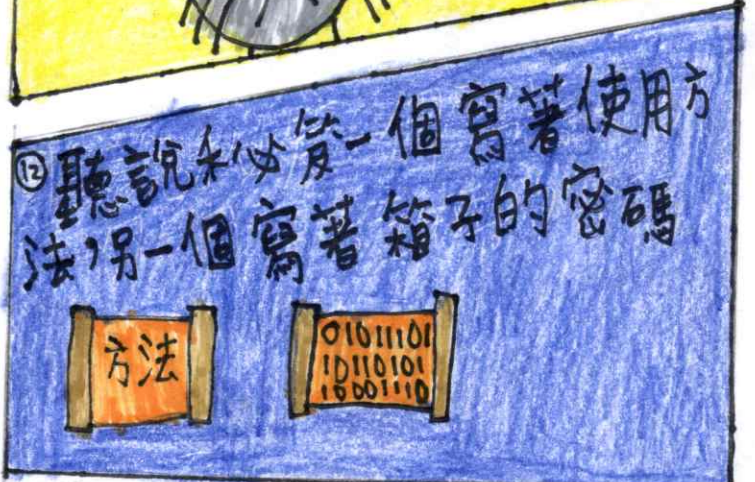 ⑫聽說秘笈一個寫著使用方
法,另一個寫著箱子的密碼
方法
01011101
10110101
10001110